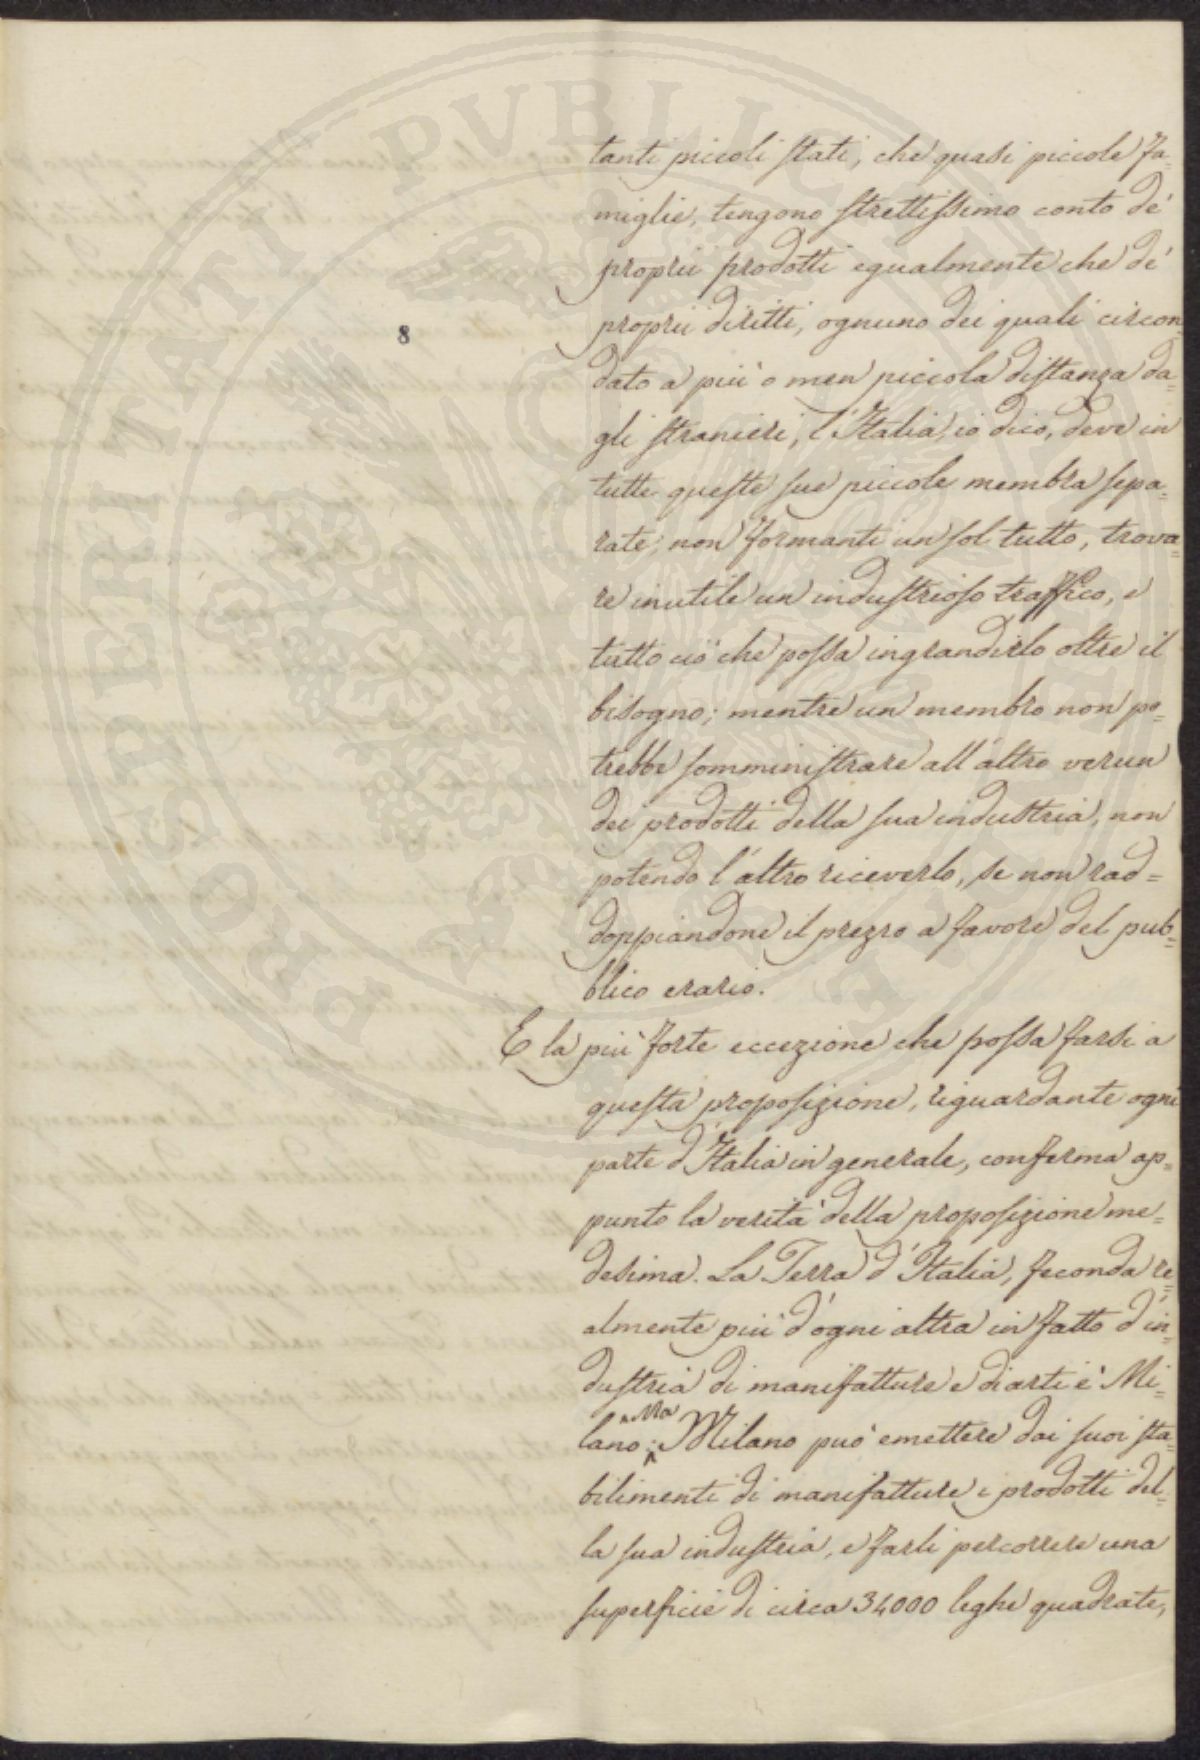 PROSPERITATI PUBLICAE
8
tanti piccoli stati, che quasi piccole fa-
miglie, tengono strettissimo conto de'
proprii prodotti egualmente che de'
proprii diritti, ognuno dei quali circon-
dato a più o men piccola distanza da-
gli stranieri, l'Italia, io dico, deve in
tutte queste sue piccole membra sepa-
rate, non formanti un sol tutto, trova-
re inutile un industrioso traffico, e
tutto ciò che possa ingrandirlo oltre il
bisogno; mentre un membro non po-
trebbe somministrare all'altro verun
dei prodotti della sua industria, non
potendo l'altro riceverlo, se non rad=
doppiandone il prezzo a favore del pub-
blico erario.
E la più forte eccezione che possa farsi a
questa proposizione, riguardante ogni
parte d'Italia in generale, conferma ap=
punto la verità della proposizione me=
desima. La Terra d'Italia, feconda re-
almente più d'ogni altra in fatto d'in-
dustria di manifatture e di arti è Mi-
lano; ma Milano può emettere dai suoi sta-
bilimenti di manifatture i prodotti del-
la sua industria, e farli percorrere una
superficie di circa 34000 leghe quadrate,